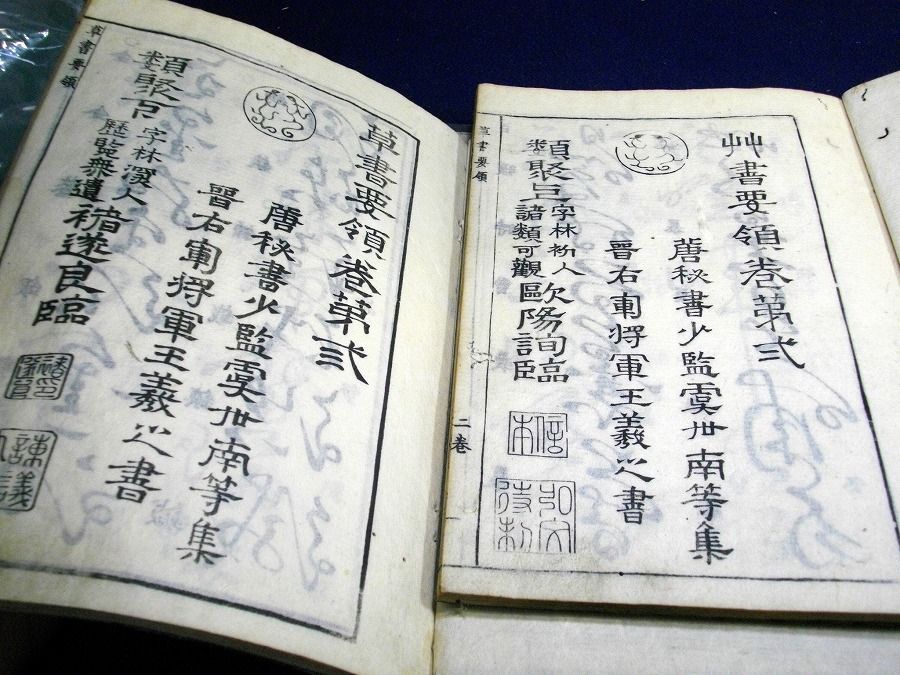 艸書要領卷第弍
唐秘書少監虞世南等集
晉右軍将軍王羲之書
類聚
字林人欧陽詢臨
諸類可觀歐陽詢臣
信本
弘文待制
二卷
草書要領
草書要領卷第弎
唐秘書少監虞世南等集
晉右軍将軍王羲之書
類聚
字林漢人
歴監衆遺
褚遂良臨
諫議
草書要領